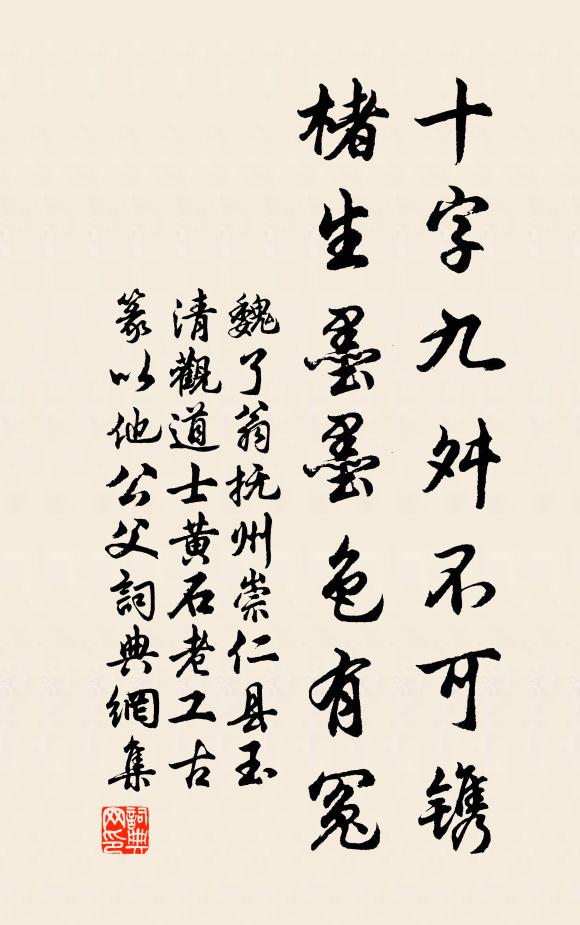 十字九舛不可鐫
楮生墨墨色有冤
魏了翁抚州崇仁县玉
清觀道士黄石老工古
篆以他公父詞典網集
詞典网印